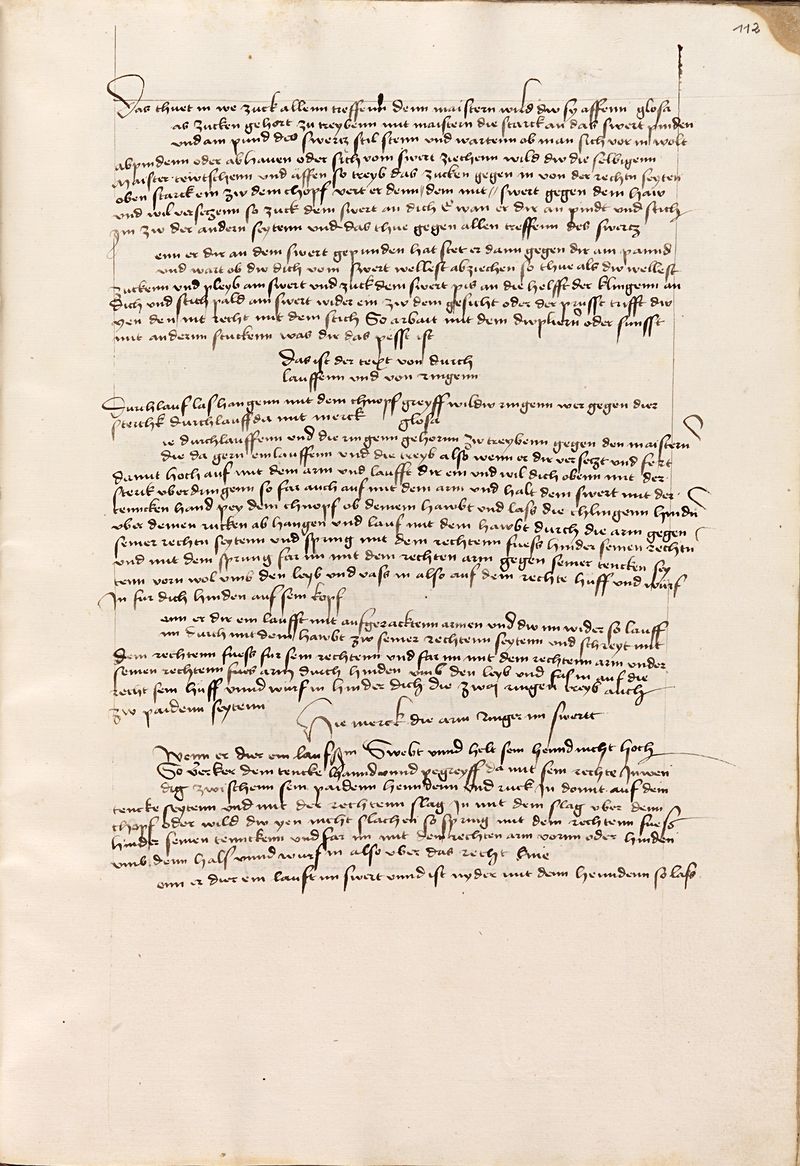 112
Das thuet in we zuck allenn treffenn denn maistern wild dw sy affenn glosa
as zucken gehort zu treybenn mit maistern die starck an das swert pinden
und am pund des swertz stil stenn und wartenn ob man sich vor in wolt
abpindenn oder abhauen oder sich vom swert ziechenn wild dw die selbigenn
Maister tewtschenn und äffen so treyb das zucken gegen in von der rechtn seyten
oben starck ein zw dem chopf vert er denn dem mit swert gegen dem haw
und wil versetzenn so zuck dem swert an dich E wan er dir an pindt und stich
Im zw der andern seytenn und das thue gegen allen treffenn des swertz
enn er dir an dem swert gepunden hat stet er dann gegen dir am pannd
und wart ob dw dich vom swert wellest abziechen so thue als dw wellest
zuckenn und pleyb am swert und zuck dem swert pis an die helfft der klingenn an
Dich und stich pald am swert wider ein zw dem gesicht oder der prusst trifft dw
yen den nit recht mit dem stich So arbait mit dem dupliern oder sunsst
mit andernn stuckenn was dir das pesst ist
Das ist der text von durch
lauffenn und von ringenn
Durchlauf las hangenn mit dem chnopf greyff wildw ringenn wer gegen dier
sterckh durchlauff da mit merck glosa
ie durchlauffenn und die ringenn gehornn zw treybenn gegen den maistern
die da gern einlauffenn und die treyb also wenn er dir versetzt und fert
damit hoch auf mit dem arm und laufft dir ein und wil dich obenn mit der
sterck uberdringenn so far auch auf mit dem arm und halt dem swert mit der
tenncken hand pey dem chnopf ob deinem hawbt und lass die chlingenn hindn
uber deinen rucken ab hangen und lauf mit dem hawbt durch die arm gegen
seiner rechtn seytenn und spring mit dem rechtenn fuess hinder seinen rechtn
und mit dem sprung far im mit dem rechten arm gegen seiner tencken sey
tenn vorn wol umb den leyb und vass in also auf dein rechte huff und wurf
In fur dich hinden auf sein kopf
enn er dir ein laufft mit aufgeracktenn armen und dw im wider so lauff
im durch mit dem hawbt zw seiner rechtenn seytenn und schreyt mit
dem rechtenn fuess fur sein rechtenn und far im mit dem rechtenn arm under
seinen rechtenn arm durch hinden umb den leyb und fass in auf die
recht dein huff unnd wurf in hinder dich die zwai ringen treyb auch
zw paidenn seytenn
Hie merck die arm ringen im swertt
Wenn er dier ein lauf Im Swebt unnd helt sein hennd nicht hoch
So verker dein tencke hannd unnd pegreyff da mit sein rechte Inwen
dig zwischenn sein paidenn henndenn und ruck In domit auf dein
tencke seytenn und mit der rechtenn slag In mit dem slag uber denn
chopf oder wild dw yen nicht slachen so spring mit dem rechtenn fuess
hinder seinen tenncken und far im mit dem rechten arm vornn oder hinden
umb denn hals unnd wurf in also uber das recht knie
enn er dier ein lauft im swert unnd ist nyder mit denn henndenn so lass